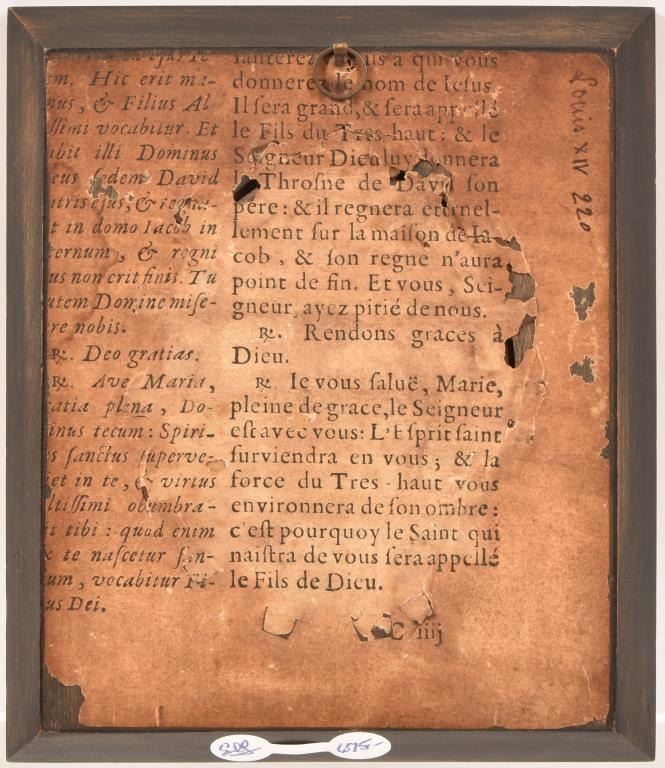 m. Hic erit ma-
nus, & Filius Al
ſſimi vocabitur. Et
abit illi Dominus
eus ſedem David
atris ejus, & regna-
t in domo Iacob in
ternum, & regni
us non erit finis. Tu
utem Domine miſe-
re nobis.
℟. Deo gratias.
℟. Ave Maria,
ratia plena, Do-
inus tecum: Spiri-
s ſanctus ſuperve-
et in te, & virtus
ltiſſimi obumbra-
it tibi: quod enim
x te naſcetur ſan-
um, vocabitur Fi-
us Dei.
fanterez fils à qui vous
donnerez le nom de Ieſus.
Il ſera grand, & ſera appellé
le Fils du Tres-haut: & le
Seigneur Dieu luy donnera
le Throſne de David ſon
pere: & il regnera eternel-
lement ſur la maiſon de Ia-
cob, & ſon regne n'aura
point de fin. Et vous, Sei-
gneur, ayez pitié de nous.
℟. Rendons graces à
Dieu.
℟. Ie vous ſaluë, Marie,
pleine de grace, le Seigneur
eſt avec vous: L'Eſprit ſaint
ſurviendra en vous; & la
force du Tres-haut vous
environnera de ſon ombre:
c'eſt pourquoy le Saint qui
naiſtra de vous ſera appellé
le Fils de Dieu.
C iiij
Louis XIV 220